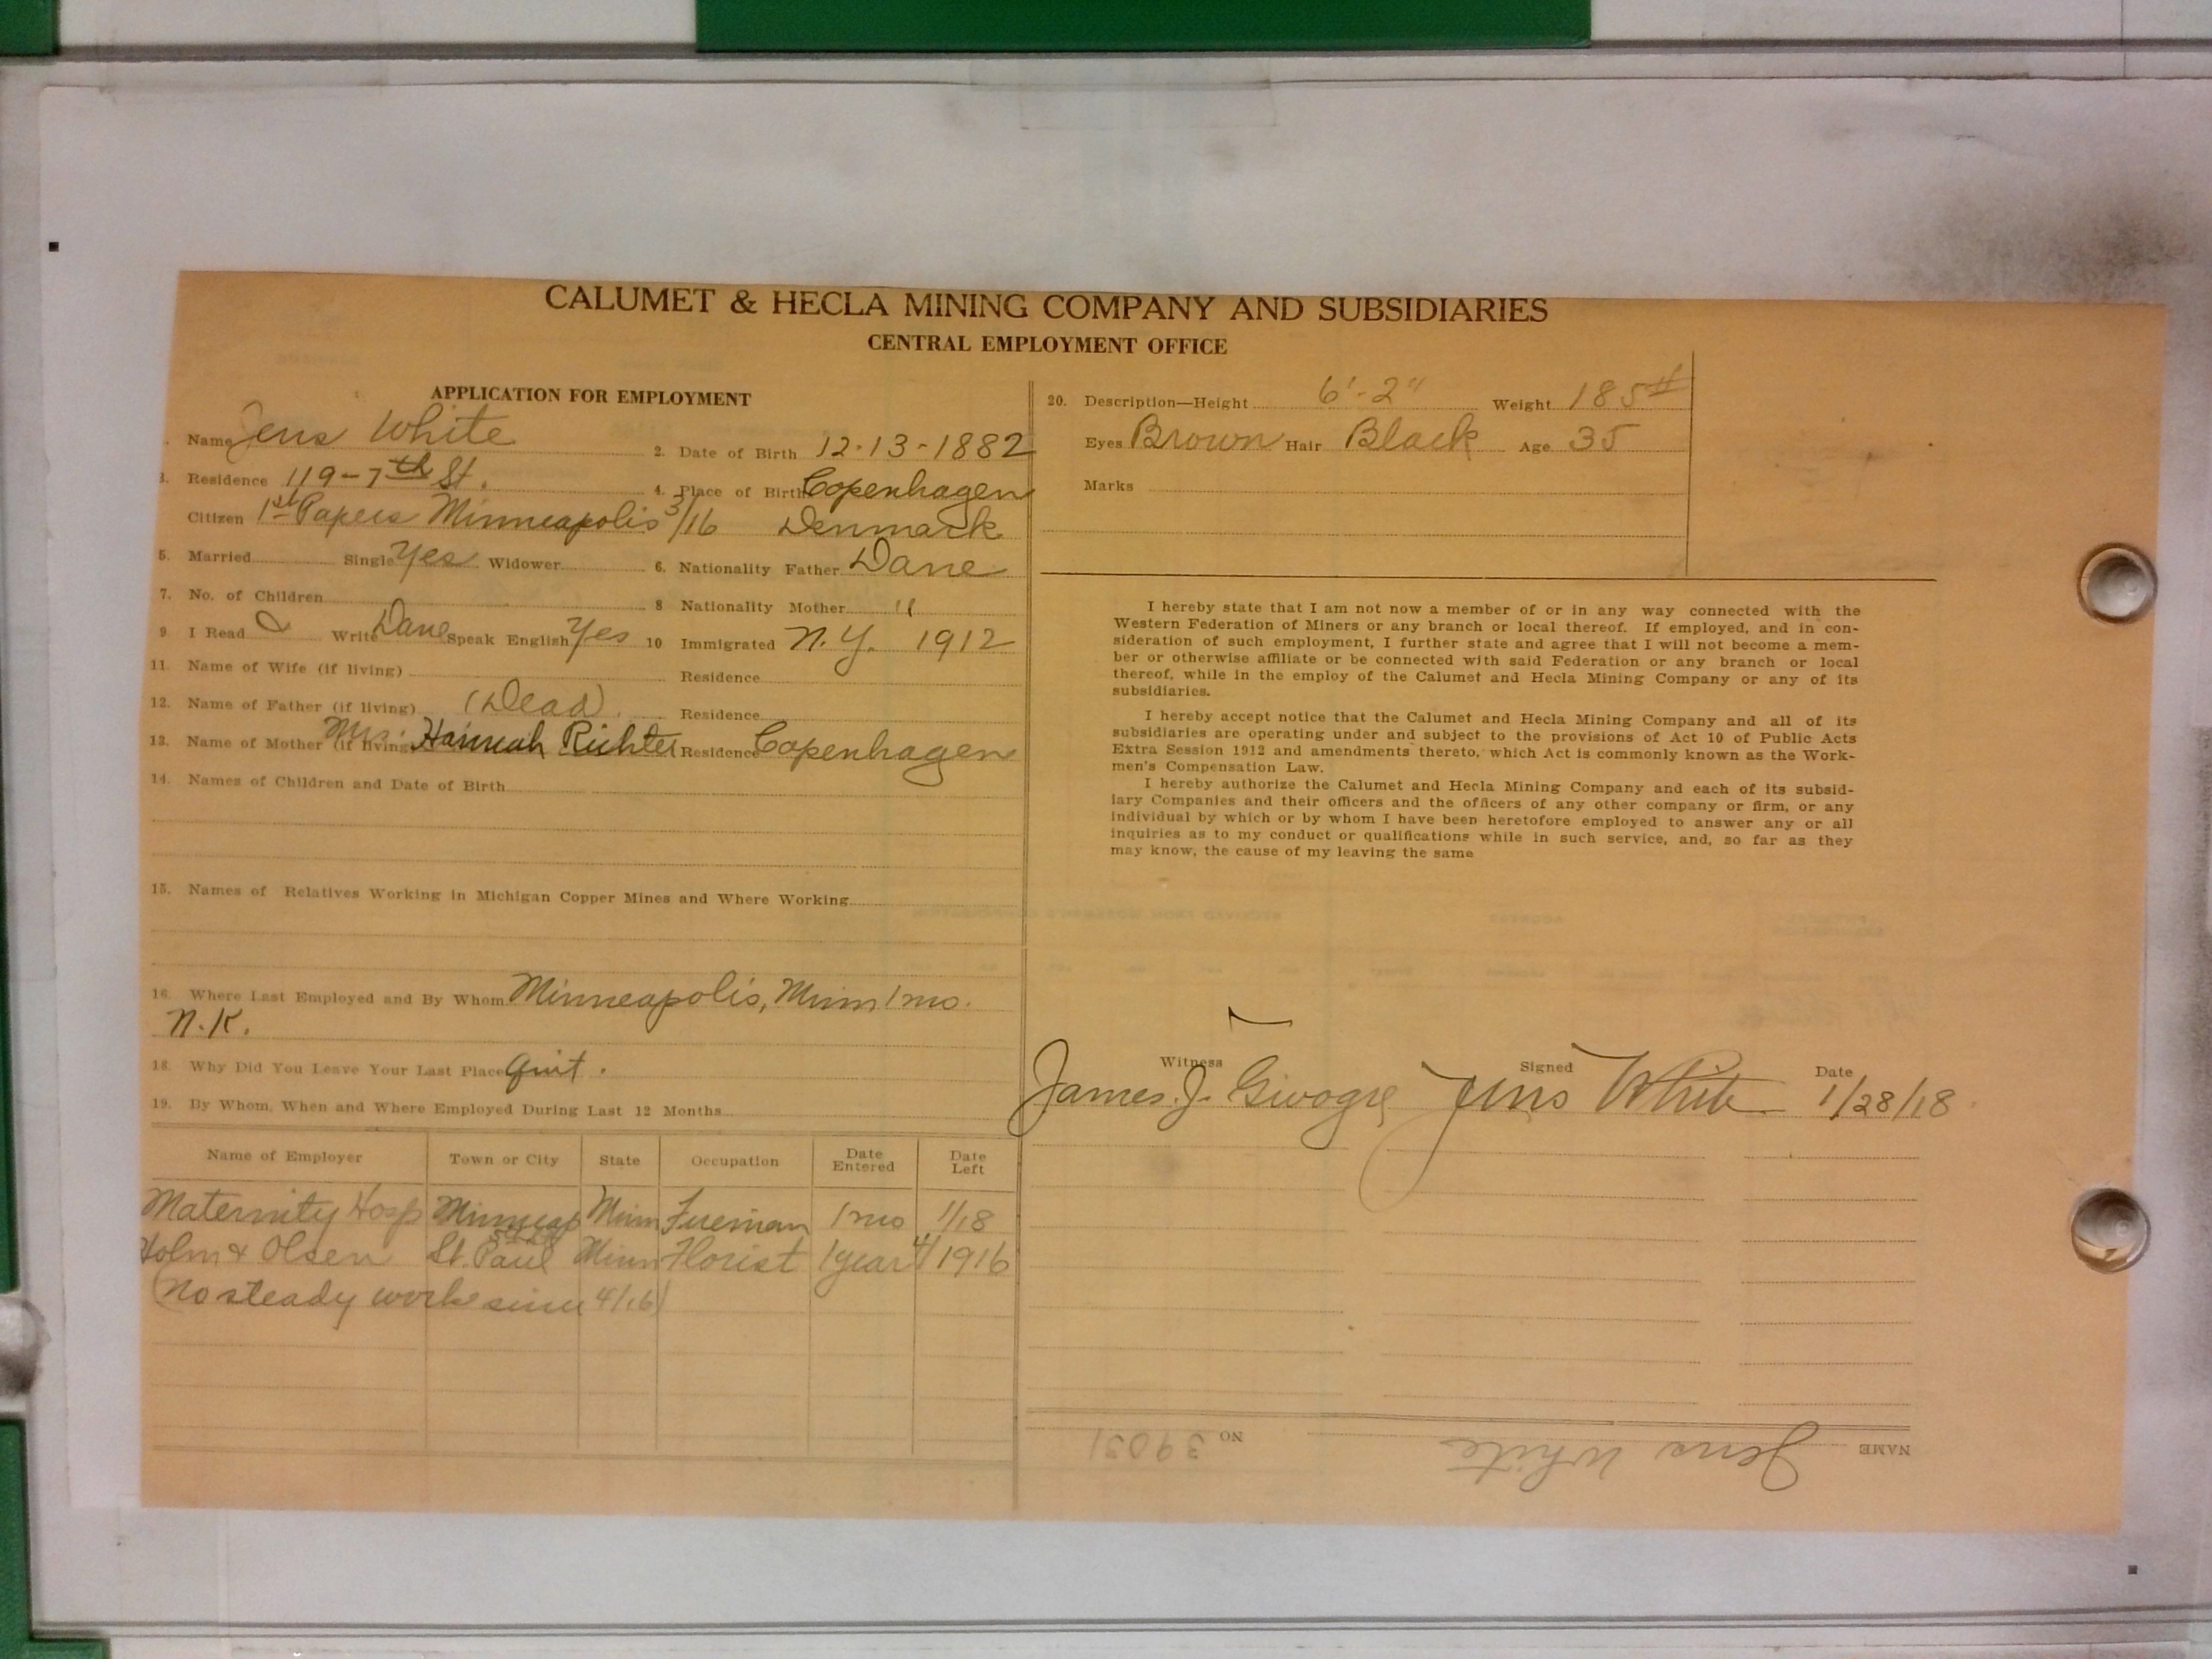 CALUMET & HECLA MINING COMPANY AND SUBSIDIARIES
CENTRAL EMPLOYMENT OFFICE
APPLICATION FOR EMPLOYMENT
Name Jens White 2. Date of Birth 12-13-1882
3. Residence 119-7th St. 4. Place of Birth Copenhagen
Citizen 1st Papers Minneapolis 3/16 Denmark
5. Married Single Yes Widower 6. Nationality Father Dane
7. No. of Children 8 Nationality Mother "
9. I Read & Write Dane Speak English Yes 10 Immigrated N.Y. 1912
11. Name of Wife (if living) Residence
12. Name of Father (if living) (Dead) Residence
13. Name of Mother (if living) Mrs. Hannah Richter Residence Copenhagen
14. Names of Children and Date of Birth
15. Names of Relatives Working in Michigan Copper Mines and Where Working
16. Where Last Employed and By Whom Minneapolis, Minn 1 mo.
N.K.
18. Why Did You Leave Your Last Place Quit.
19. By Whom, When and Where Employed During Last 12 Months
Name of Employer Town or City State Occupation Date Entered Date Left
Maternity Hosp Minneap Minn Fireman 1 mo 1/18
Holm & Olsen St. Paul Minn Florist 1 year 4/1916
(No steady work since 4/16)
20. Description—Height 6'-2" Weight 185#
Eyes Brown Hair Black Age 35
Marks
I hereby state that I am not now a member of or in any way connected with the
Western Federation of Miners or any branch or local thereof. If employed, and in con-
sideration of such employment, I further state and agree that I will not become a mem-
ber or otherwise affiliate or be connected with said Federation or any branch or local
thereof, while in the employ of the Calumet and Hecla Mining Company or any of its
subsidiaries.
I hereby accept notice that the Calumet and Hecla Mining Company and all of its
subsidiaries are operating under and subject to the provisions of Act 10 of Public Acts
Extra Session 1912 and amendments thereto, which Act is commonly known as the Work-
men's Compensation Law.
I hereby authorize the Calumet and Hecla Mining Company and each of its subsid-
iary Companies and their officers and the officers of any other company or firm, or any
individual by which or by whom I have been heretofore employed to answer any or all
inquiries as to my conduct or qualifications while in such service, and, so far as they
may know, the cause of my leaving the same
Witness Signed Date
James J. Jens White 1/28/18
NAME Jens White NO 39031